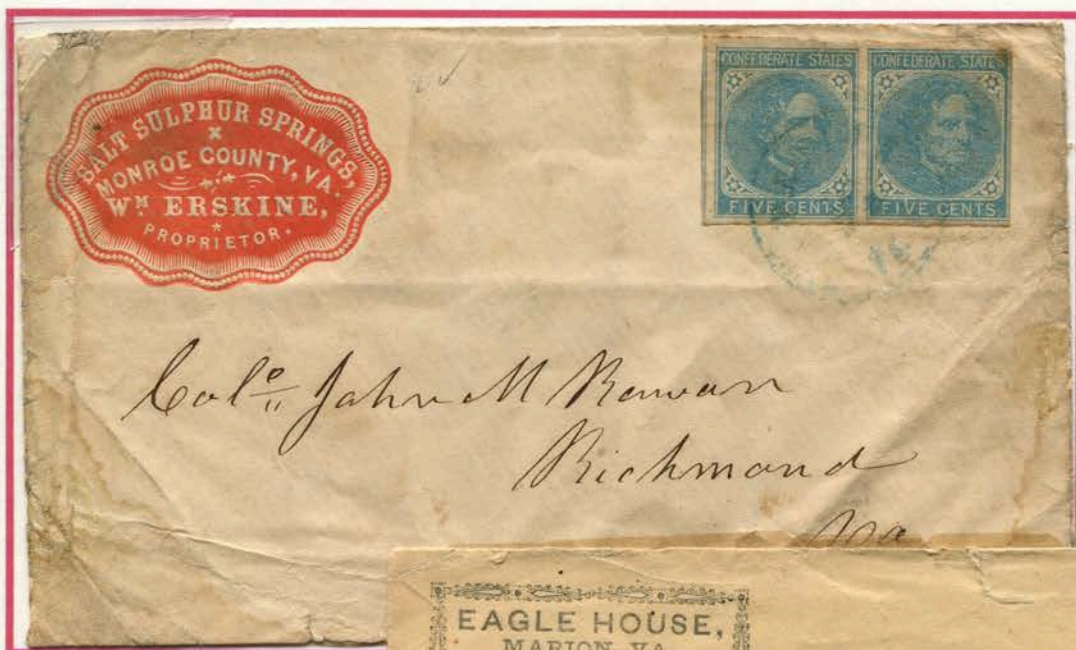 SALT SULPHUR SPRINGS,
MONROE COUNTY, VA.
WM ERSKINE,
PROPRIETOR.
CONFEDERATE STATES
FIVE CENTS
CONFEDERATE STATES
FIVE CENTS
Colo John M Rowan
Richmond
Va
EAGLE HOUSE,
MARION, VA.